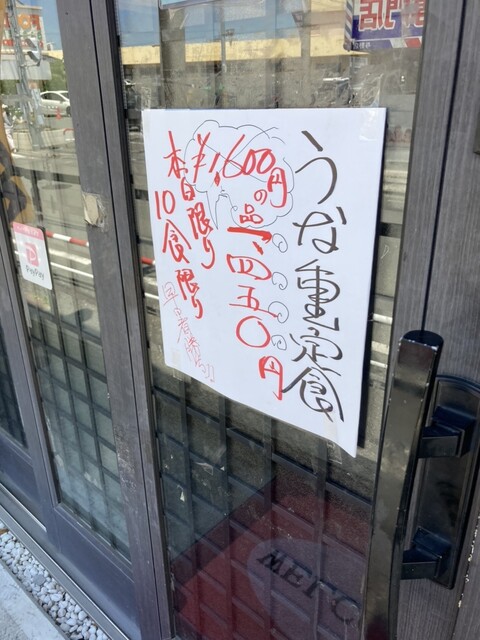 うな重定食
¥1,600円の品
一、四五〇円
本日限り
10食限り
早い者勝ち!!
PayPay
門店